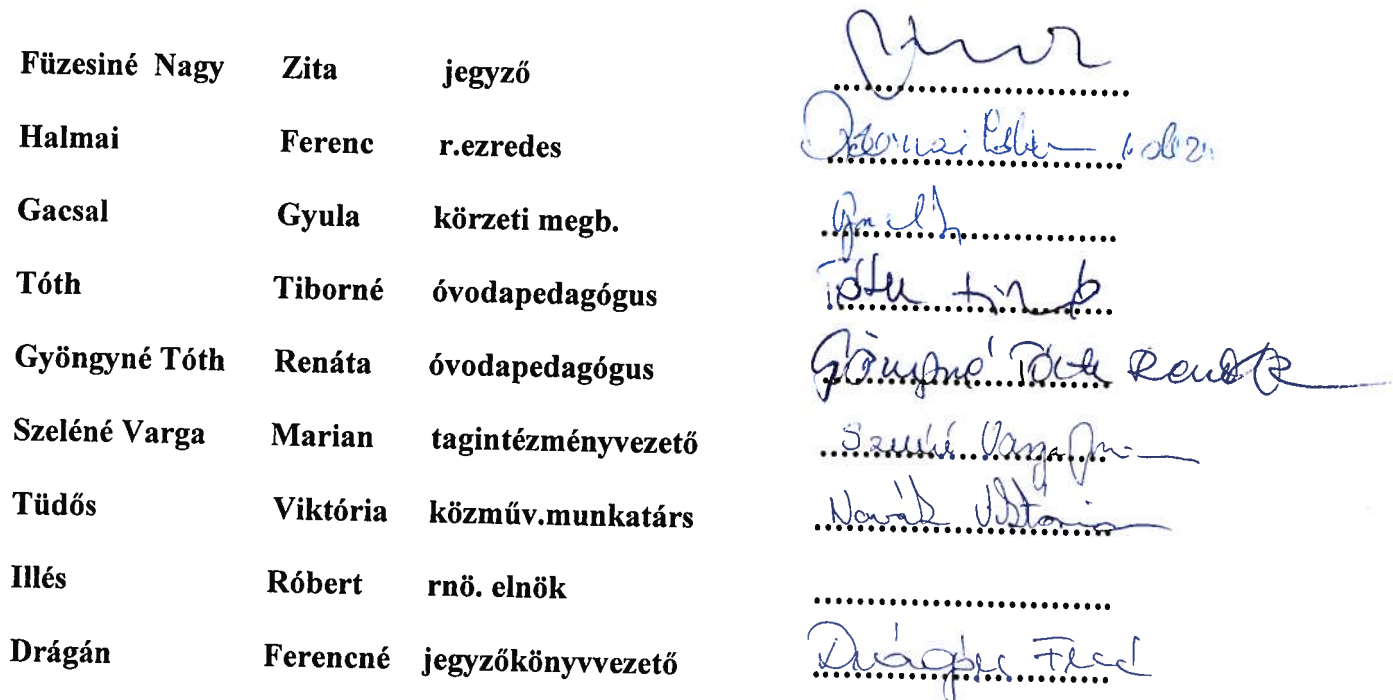 Füzesiné Nagy Zita jegyző
Halmai Ferenc r.ezredes
Gacsal Gyula körzeti megb.
Tóth Tiborné óvodapedagógus Tóth
Gyöngyné Tóth Renáta óvodapedagógus Gyöngyné Tóth Renáta
Szeléné Varga Marian tagintézményvezető Szeléné Varga
Tüdős Viktória közműv.munkatárs Novák Viktória
Illés Róbert rnö. elnök
Drágán Ferencné jegyzőkönyvvezető Drágán